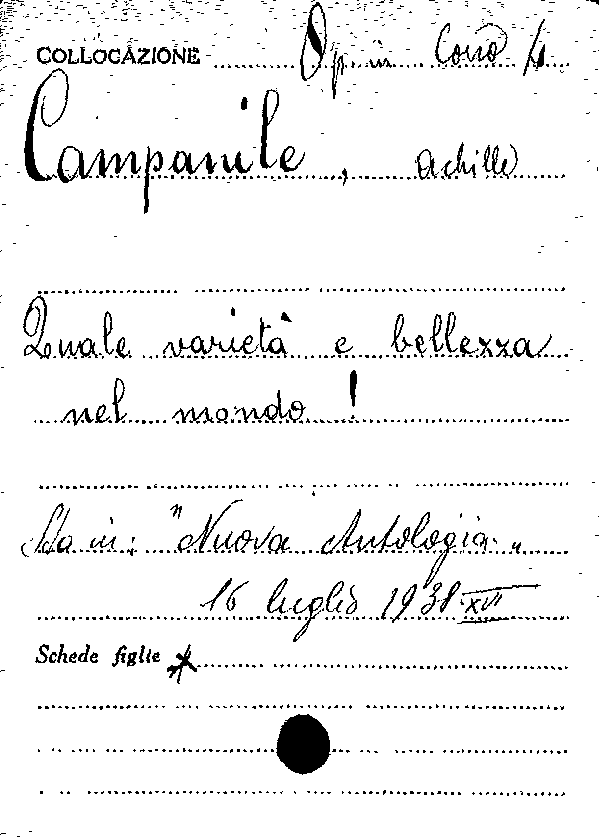 COLLOCAZIONE Op. in Corso 4
Campanile, Achille
Quale varietà e bellezza
nel mondo!
Sta in: "Nuova Antologia."
16 luglio 1938-XVI
Schede figlie *